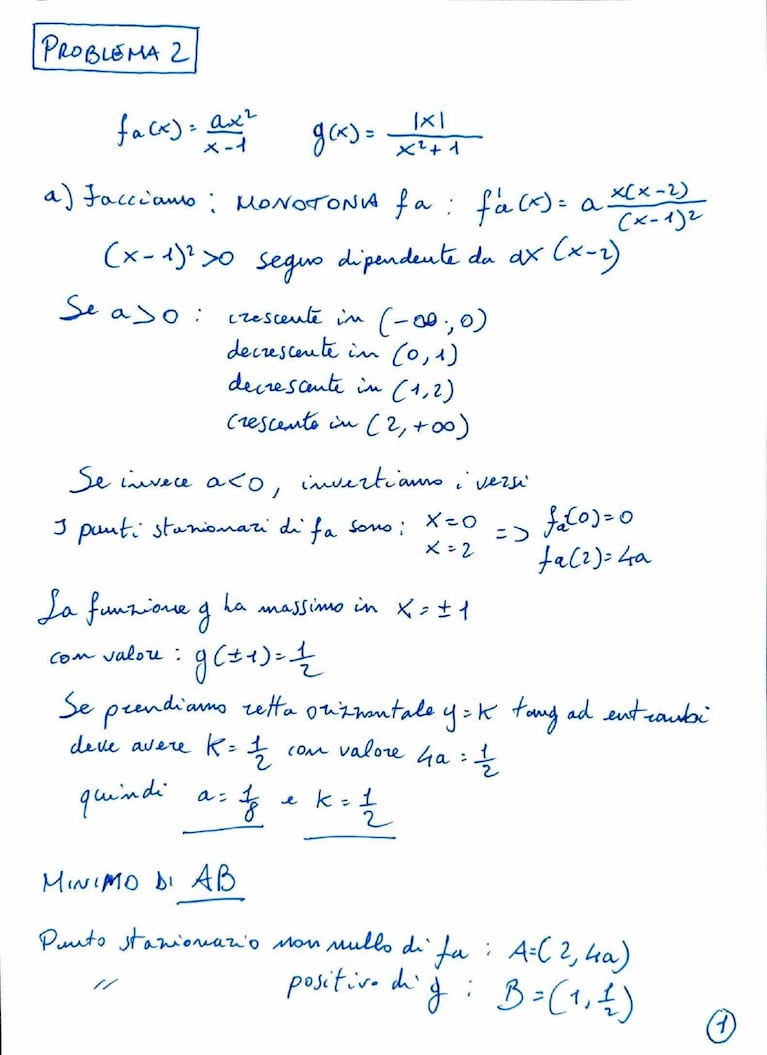 PROBLEMA 2
fa(x) = ax²/(x-1) g(x) = |x|/(x²+1)
a) Facciamo : MONOTONIA fa : f'a(x) = a x(x-2)/(x-1)²
(x-1)²>0 segno dipendente da ax (x-2)
Se a>0 : crescente in (-∞,0)
decrescente in (0,1)
decrescente in (1,2)
crescente in (2,+∞)
Se invece a<0, invertiamo i versi
I punti stazionari di fa sono : x=0 => fa(0)=0
x=2 fa(2)=4a
La funzione g ha massimo in x=±1
con valore : g(±1)=1/2
Se prendiamo retta orizzontale y=k tang ad entrambi
deve avere k=1/2 con valore 4a=1/2
quindi a=1/8 e k=1/2
MINIMO DI AB
Punto stazionario non nullo di fa : A=(2,4a)
// positivo di g : B=(1,1/2)
1